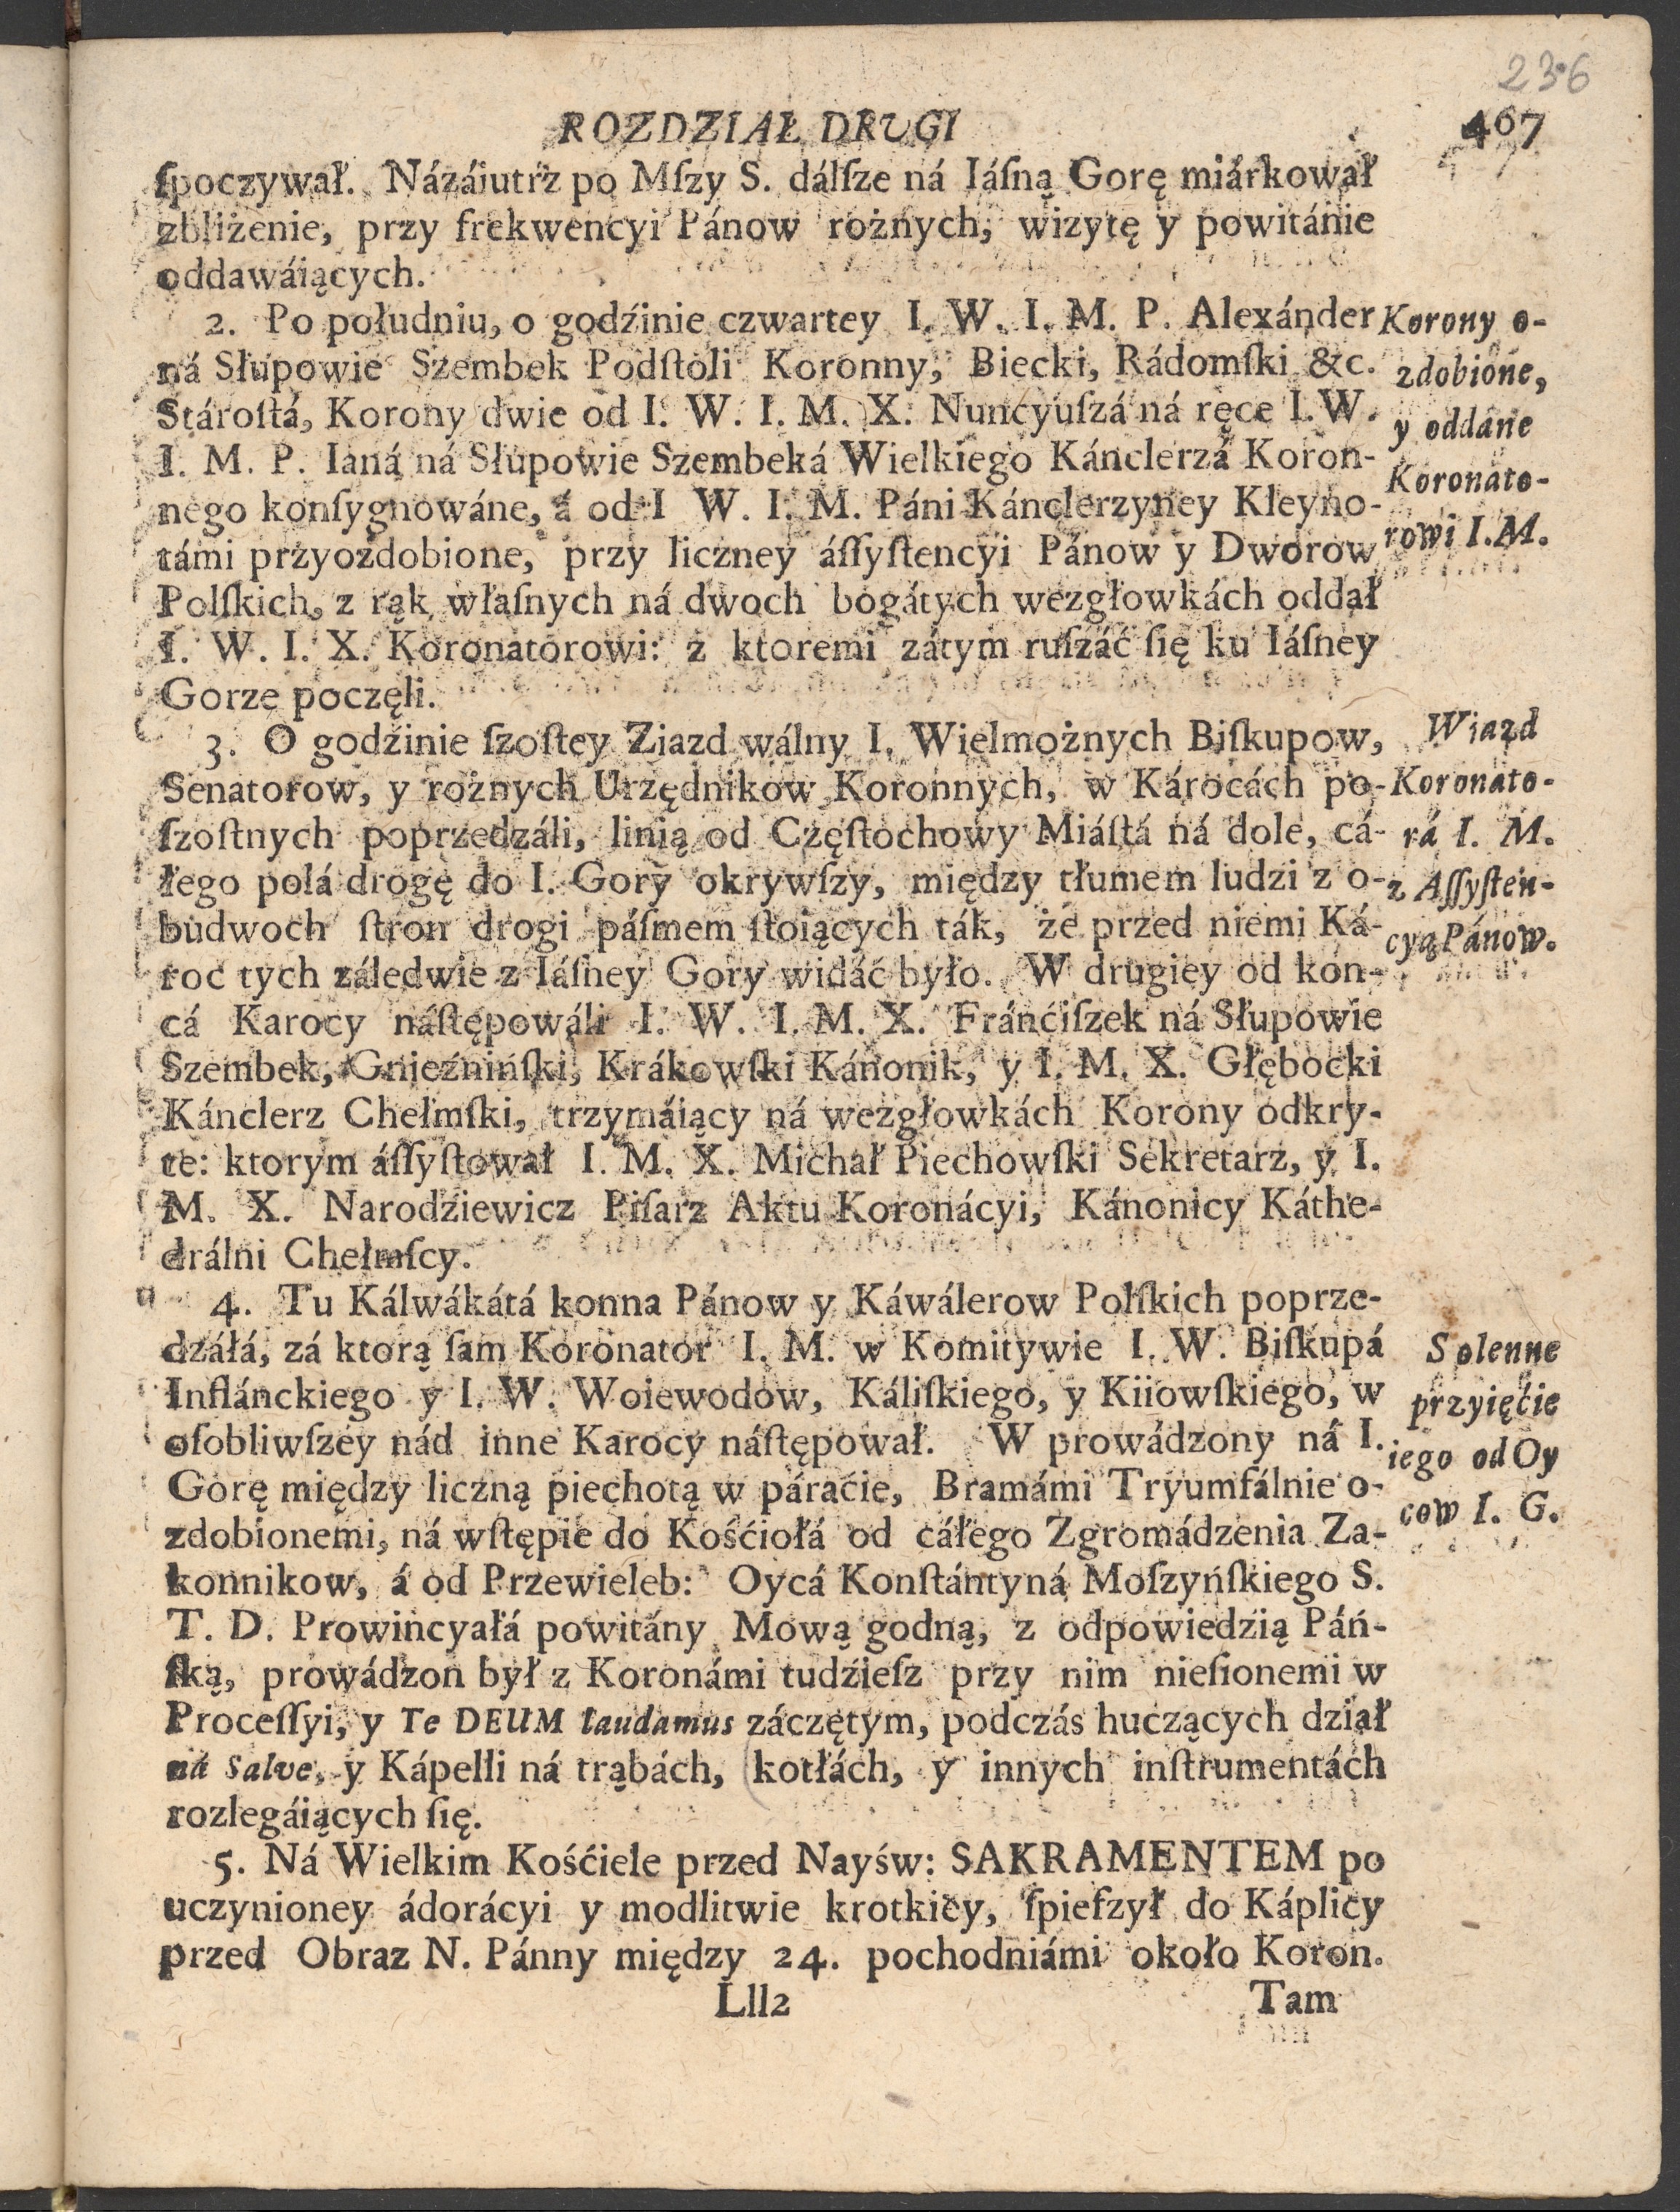 236
ROZDZIAŁ DRUGI 467
ſpoczywał. Názáiutrz po Mſzy S. dálſze ná Iáſną Gorę miárkował
zbliżenie, przy frekwencyi Pánow rożnych, wizytę y powitánie
oddawáiących.
2. Po południu, o godźinie czwartey I. W. I. M. P. Alexánder
ná Słupowie Szembek Podſtoli Koronny, Biecki, Rádomſki &c.
Stároſtá, Korony dwie od I. W. I. M. X. Nuncyuſzá ná ręce I. W.
I. M. P. Ianá ná Słupowie Szembeká Wielkiego Kánclerzá Koron-
nego konſygnowáne, á od I W. I. M. Páni Kánclerzyney Kleyno-
támi przyozdobione, przy liczney áſſyſtencyi Pánow y Dworow
Polſkich, z rąk właſnych ná dwoch bogátych wezgłowkách oddał
I. W. I. X. Koronatorowi: z ktoremi zátym ruſzáć ſię ku Iáſney
Gorze poczęli.
Korony o-
zdobione,
y oddáne
Koronato-
rowi I. M.
3. O godźinie ſzoſtey Ziazd wálny I. Wielmożnych Biſkupow,
Senatorow, y rożnych Urzędnikow Koronnych, w Károcách po-
ſzoſtnych poprzedzáli, linią od Częſtochowy Miáſtá ná dole, cá-
łego polá drogę do I. Gory okrywſzy, między tłumem ludzi z o-
budwoch ſtron drogi páſmem ſtoiących ták, że przed niemi Ká-
roc tych záledwie z Iáſney Gory widáć było. W drugiey od kon-
cá Karocy náſtępowáli I. W. I. M. X. Fránćiſzek ná Słupowie
Szembek, Gnieźninſki, Krákowſki Kánonik, y I. M. X. Głębocki
Kánclerz Chełmſki, trzymáiący ná wezgłowkách Korony odkry-
te: ktorym áſſyſtował I. M. X. Michał Piechowſki Sekretarz, y I.
M. X. Narodźiewicz Piſarz Aktu Koronácyi, Kánonicy Káthe-
drálni Chełmſcy.
Wiazd
Koronato-
rá I. M.
z Aſſyſten-
cyą Pánow.
4. Tu Kálwákátá konna Pánow y Káwálerow Polſkich poprze-
dzáłá, zá ktorą ſam Koronator I. M. w Komitywie I. W. Biſkupá
Inflánckiego y I. W. Woiewodow, Káliſkiego, y Kiiowſkiego, w
oſobliwſzey nád inne Karocy náſtępował. W prowádzony ná I.
Gorę między liczną piechotą w páraćie, Bramámi Tryumfálnie o-
zdobionemi, ná wſtępie do Kośćiołá od cáłego Zgromádzenia Za-
konnikow, á od Przewieleb: Oycá Konſtántyná Moſzyńſkiego S.
T. D. Prowincyałá powitány Mową godną, z odpowiedzią Páń-
ſką, prowádzon był z Koronámi tudźieſz przy nim nieſionemi w
Proceſſyi, y Te DEUM laudamus záczętym, podczás huczących dział
ná Salve, y Kápelli ná trąbách, kotłách, y innych inſtrumentách
rozlegáiących ſię.
Solenne
przyięćie
iego od Oy
cow I. G.
5. Ná Wielkim Kośćiele przed Nayśw: SAKRAMENTEM po
uczynioney ádorácyi y modlitwie krotkiey, ſpieſzył do Káplicy
przed Obraz N. Pánny między 24. pochodniámi około Koron.
Lll2 Tam